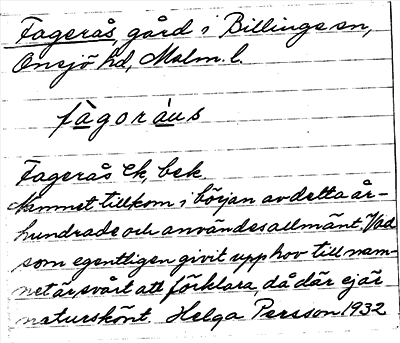 Fagerås, gård i Billinge sn,
Onsjö hd, Malm. l.
fàgoráus
Fagerås Ek, bek
Namnet tillkom i början av detta år-
hundrade och användes allmänt. Vad
som egentligen givit upphov till nam-
net är svårt att förklara, då där ej är
naturskönt. Helga Persson 1932